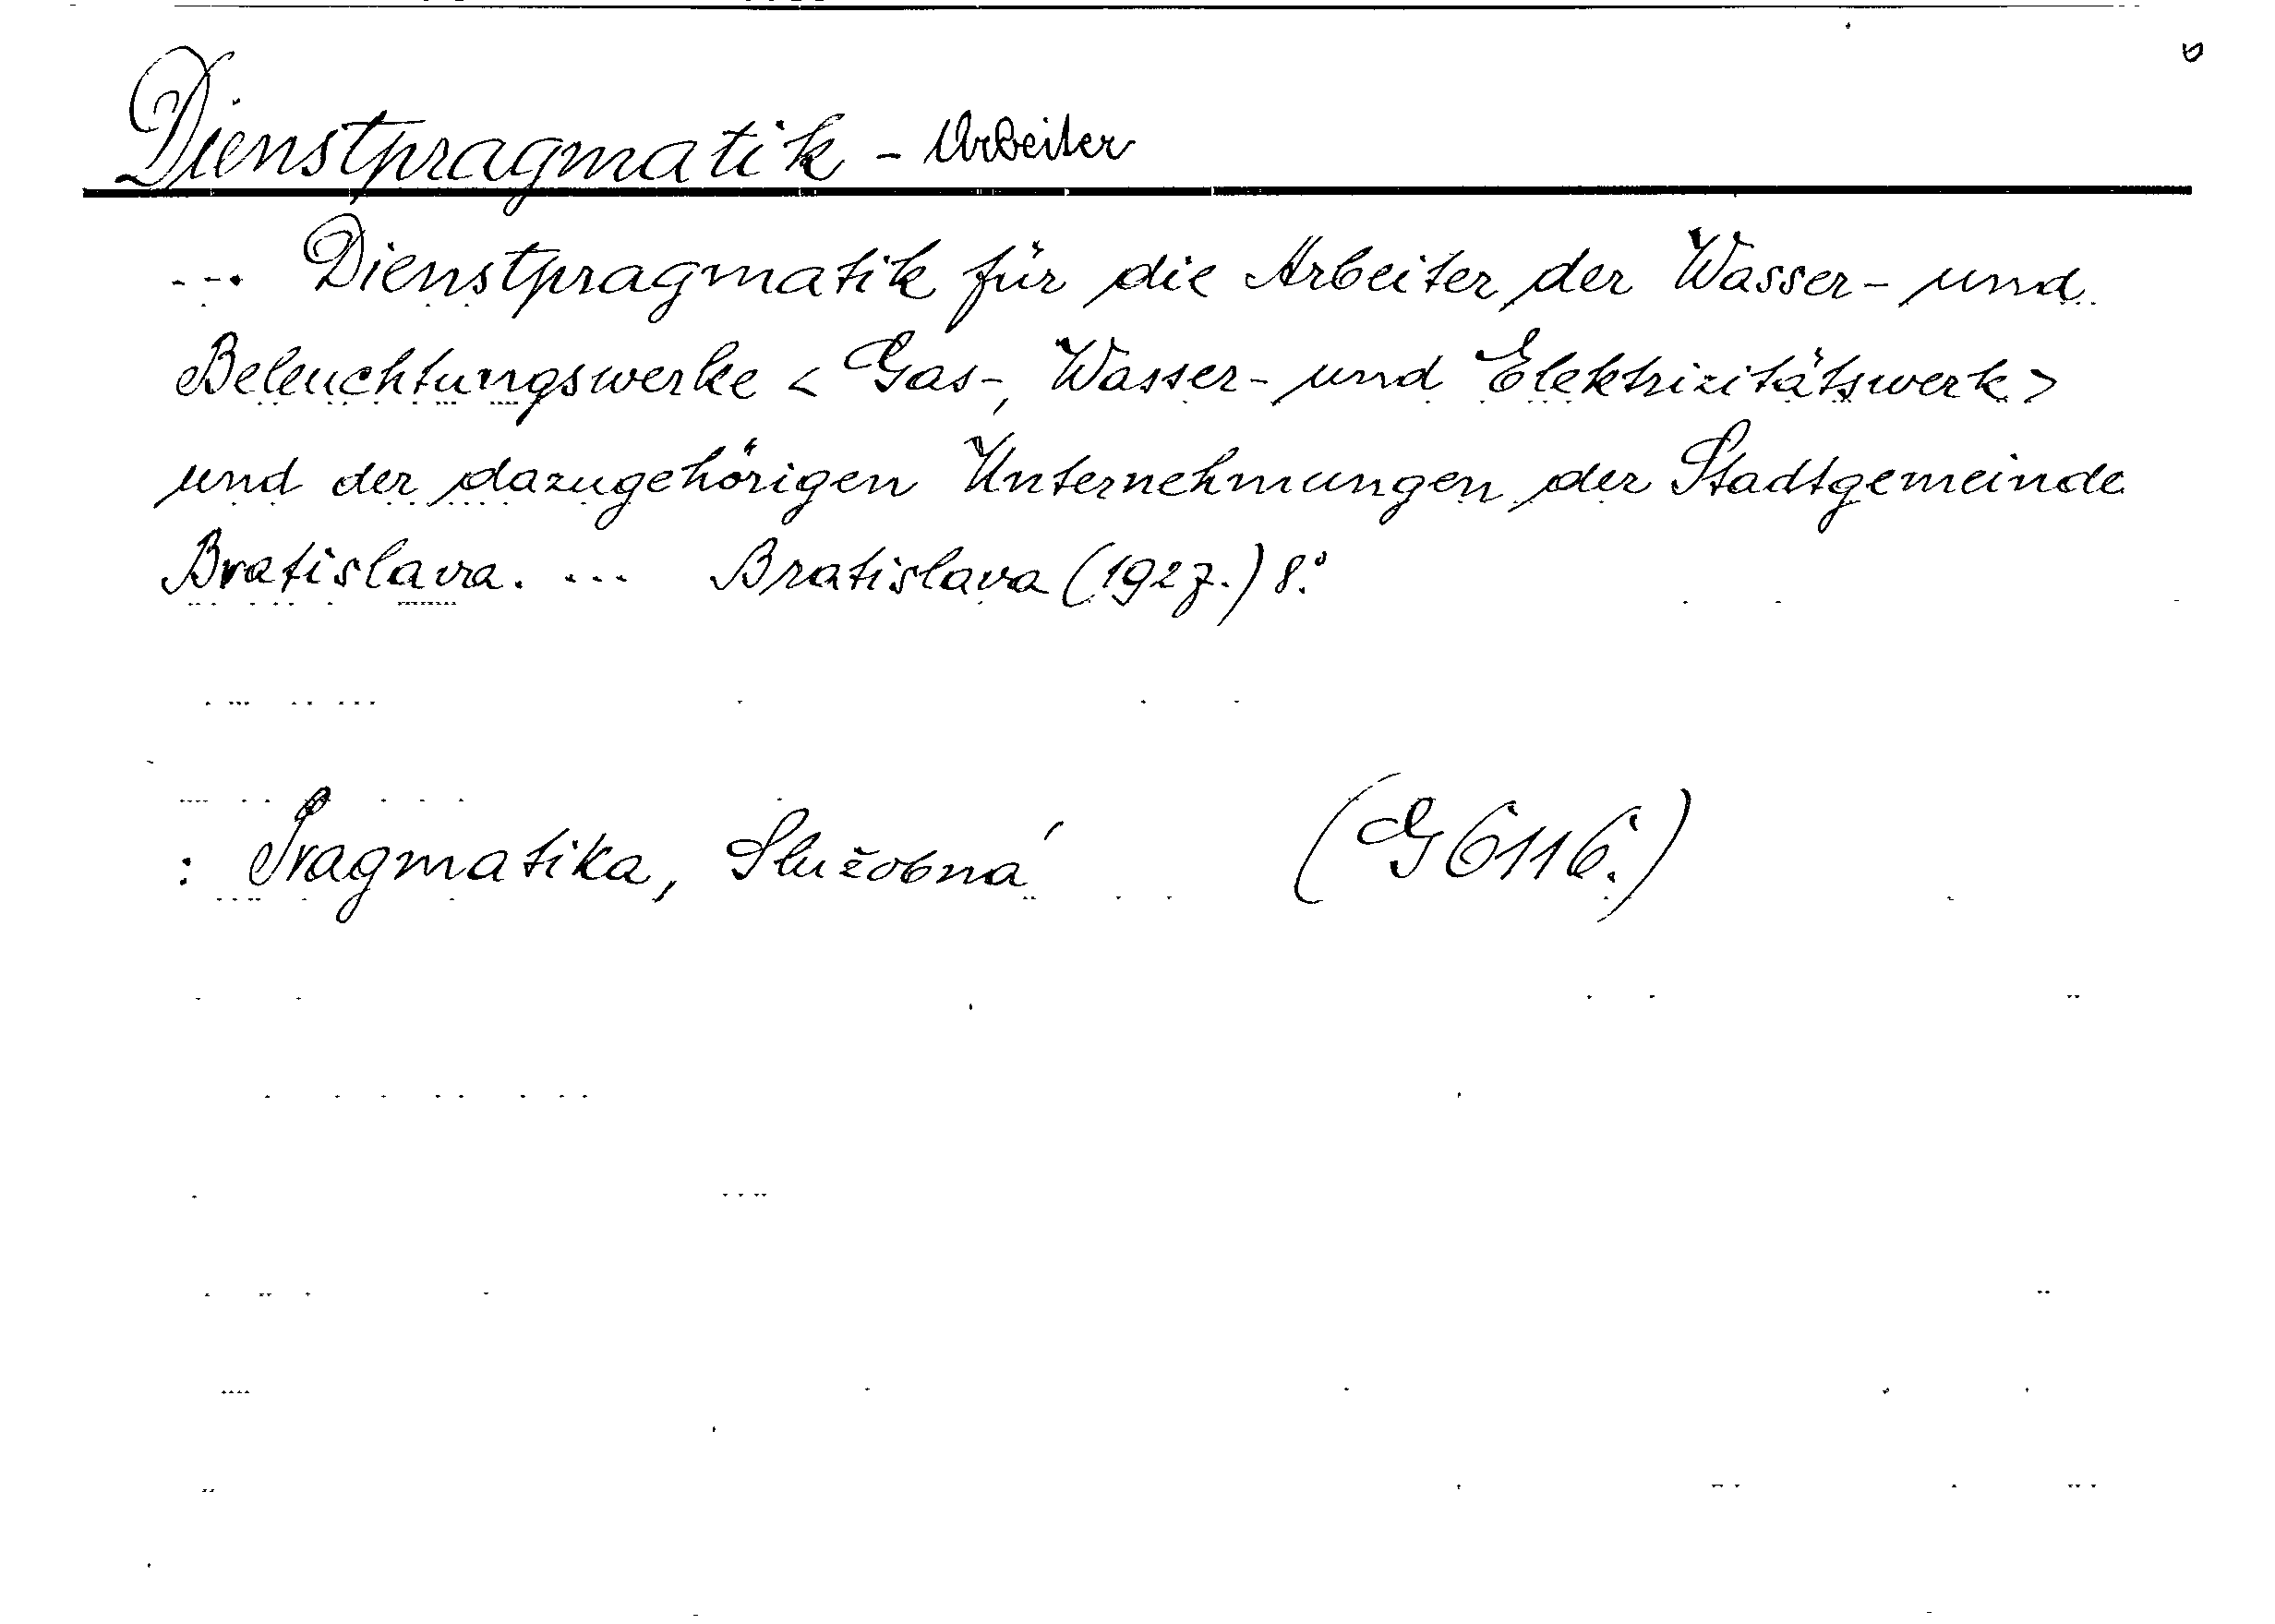 Dienstpragmatik - Arbeiter
--. Dienstpragmatik für die Arbeiter der Wasser- und
Beleuchtungswerke < Gas-, Wasser- und Elektrizitätswerk >
und der dazugehörigen Unternehmungen der Stadtgemeinde
Bratislava. ... Bratislava (1927.) 8.°
: Pragmatika, Služobná (G 6116.)